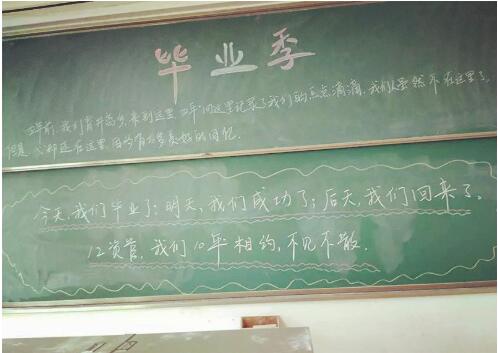 毕业季
四年前,我们背井离乡,来到这里,四年间这里记录了我们的点点滴滴,我们虽然不在这里了,
但是心却还在这里,因为有太多美好的回忆.
今天,我们毕业了;明天,我们成功了;后天,我们回来了。
12资管,我们10年相约,不见不散.